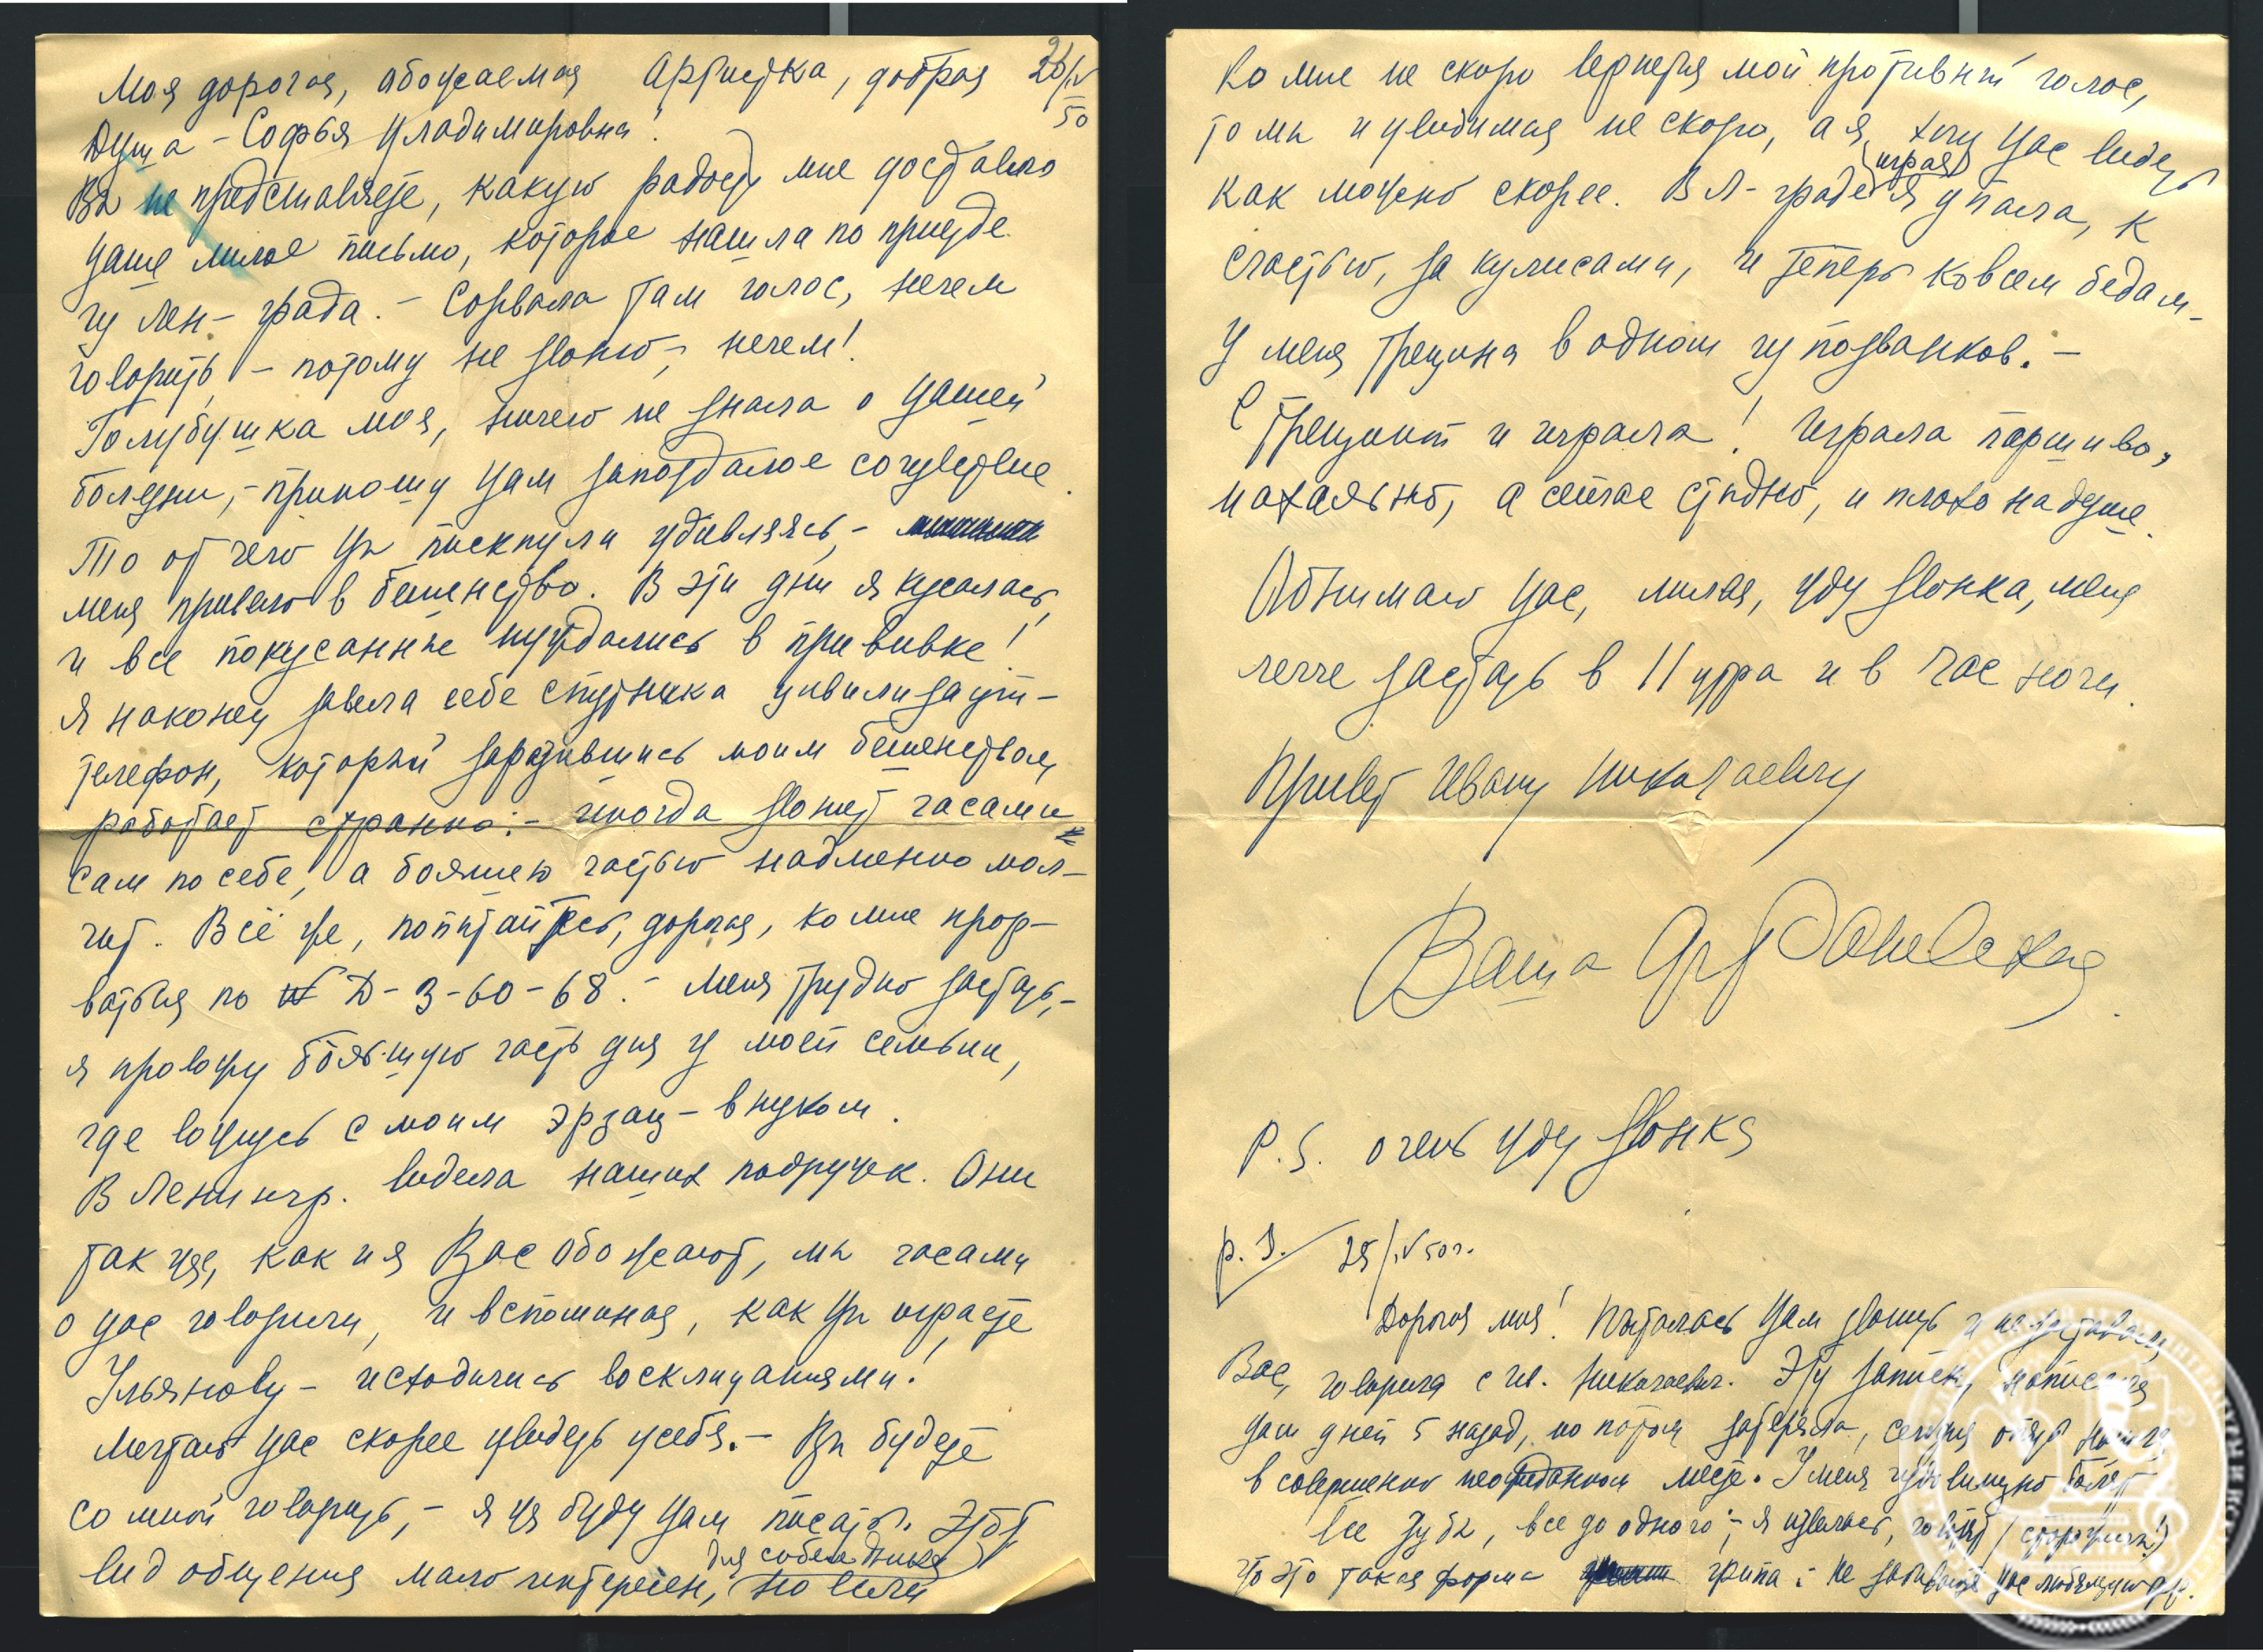 Моя дорогая, обожаемая Артистка, добрая 20/IV 50
Душа - Софья Владимировна!
Вы не представляете, какую радость мне доставило
Ваше милое письмо, которое нашла по приезде
из Лен-града. - Сорвала там голос, нечем
говорить, - потому не звоню, - нечем!
Голубушка моя, ничего не знала о Вашей
болезни, - приношу Вам запоздалое сочувствие.
То от чего Вы пискнули удивляясь, -
меня привело в бешенство. В эти дни я кусалась,
и все покусанные нуждались в прививке!
Я наконец завела себе спутника цивилизации -
телефон, который заразившись моим бешенством,
работает странно: - иногда звонит часами
сам по себе, а большею частью надменно мол-
чит. Всё же, попытайтесь, дорогая, ко мне прор-
ваться по № Д-3-60-68. - Меня трудно застать, -
я провожу большую часть дня у моей семьи,
где вожусь с моим эрзац-внуком.
В Ленингр. видела наших подружек. Они
так же, как и я Вас обожают, мы часами
о Вас говорили, и вспоминая, как Вы играете
Ульянову - исходились восклицаниями!
Мечтаю Вас скорее увидеть у себя. - Вы будете
со мной говорить, - я же буду Вам писать. Этот
вид общения мало интересен, для собеседника но если
ко мне не скоро вернется мой противный голос,
то мы и увидимся не скоро, а я хочу Вас видеть
как можно скорее. В Л-граде (играя) я упала, к
счастью, за кулисами, и теперь ко всем бедам -
у меня трещина в одном из позвонков. -
С трещиной и играла! Играла паршиво,
нахально, а сейчас стыдно, и плохо на душе.
Обнимаю Вас, милая, жду звонка, меня
легче застать в 11 утра и в час ночи.
Привет Ивану Николаевичу
Ваша Раневская.
P.S. очень жду звонка
P.S. 25/IV 50 г.
Дорогая моя! Пыталась Вам звонить и не заставала
Вас, говорила с Ив. Николаевич. Эту записку написала
Вам дней 5 назад, но потом затеряла, сегодня опять нашла
в совершенно неожиданном месте. У меня чудовищно болят
все зубы, все до одного; - я извелась, говорят
что это такая форма грипа. Не забывайте Вас любящую